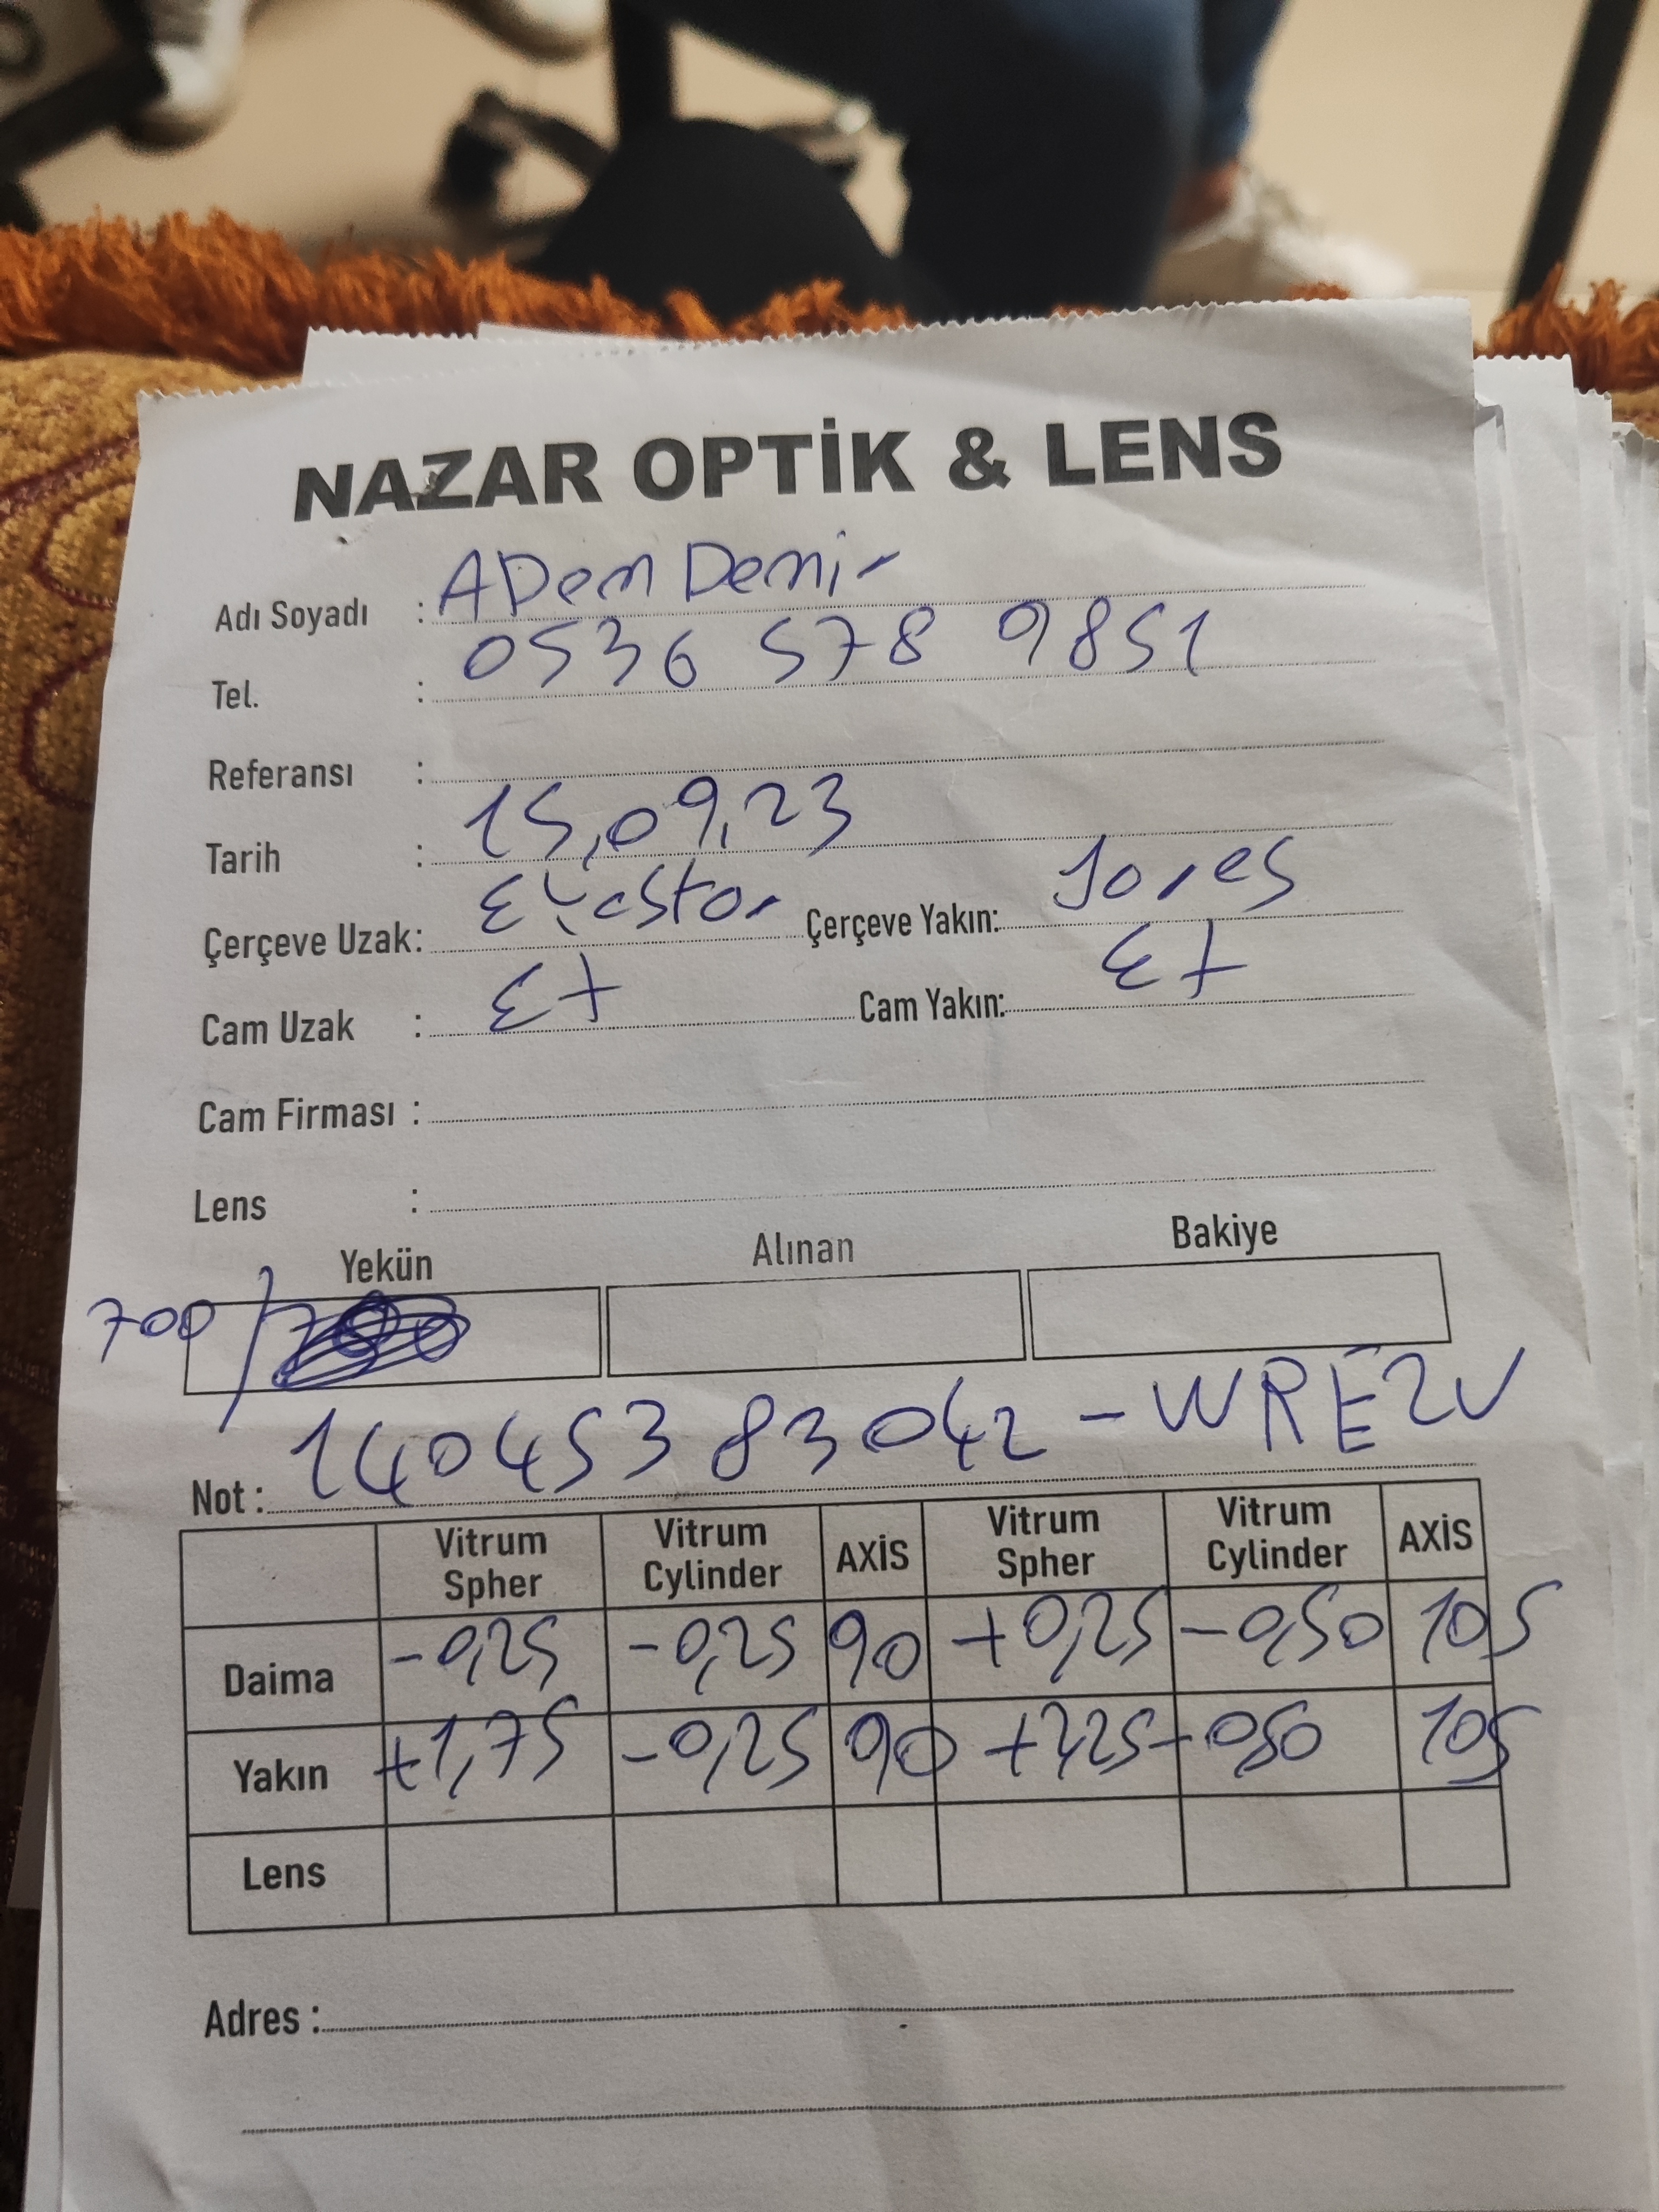 NAZAR OPTİK & LENS
Adı Soyadı : ADem Demir
Tel. : 0536 578 9851
Referansı :
Tarih : 15,09,23
Çerçeve Uzak: Çerçeve Yakın:
Cam Uzak : Cam Yakın:
Cam Firması :
Lens :
Yekün Alınan Bakiye
700/
Not : 14045383042 - WRE2V
Vitrum Spher Vitrum Cylinder AXİS Vitrum Spher Vitrum Cylinder AXİS
Daima -0,25 -0,25 90 +0,25 -0,50 105
Yakın +1,75 -0,25 90 +2,25 -0,50 105
Lens
Adres :